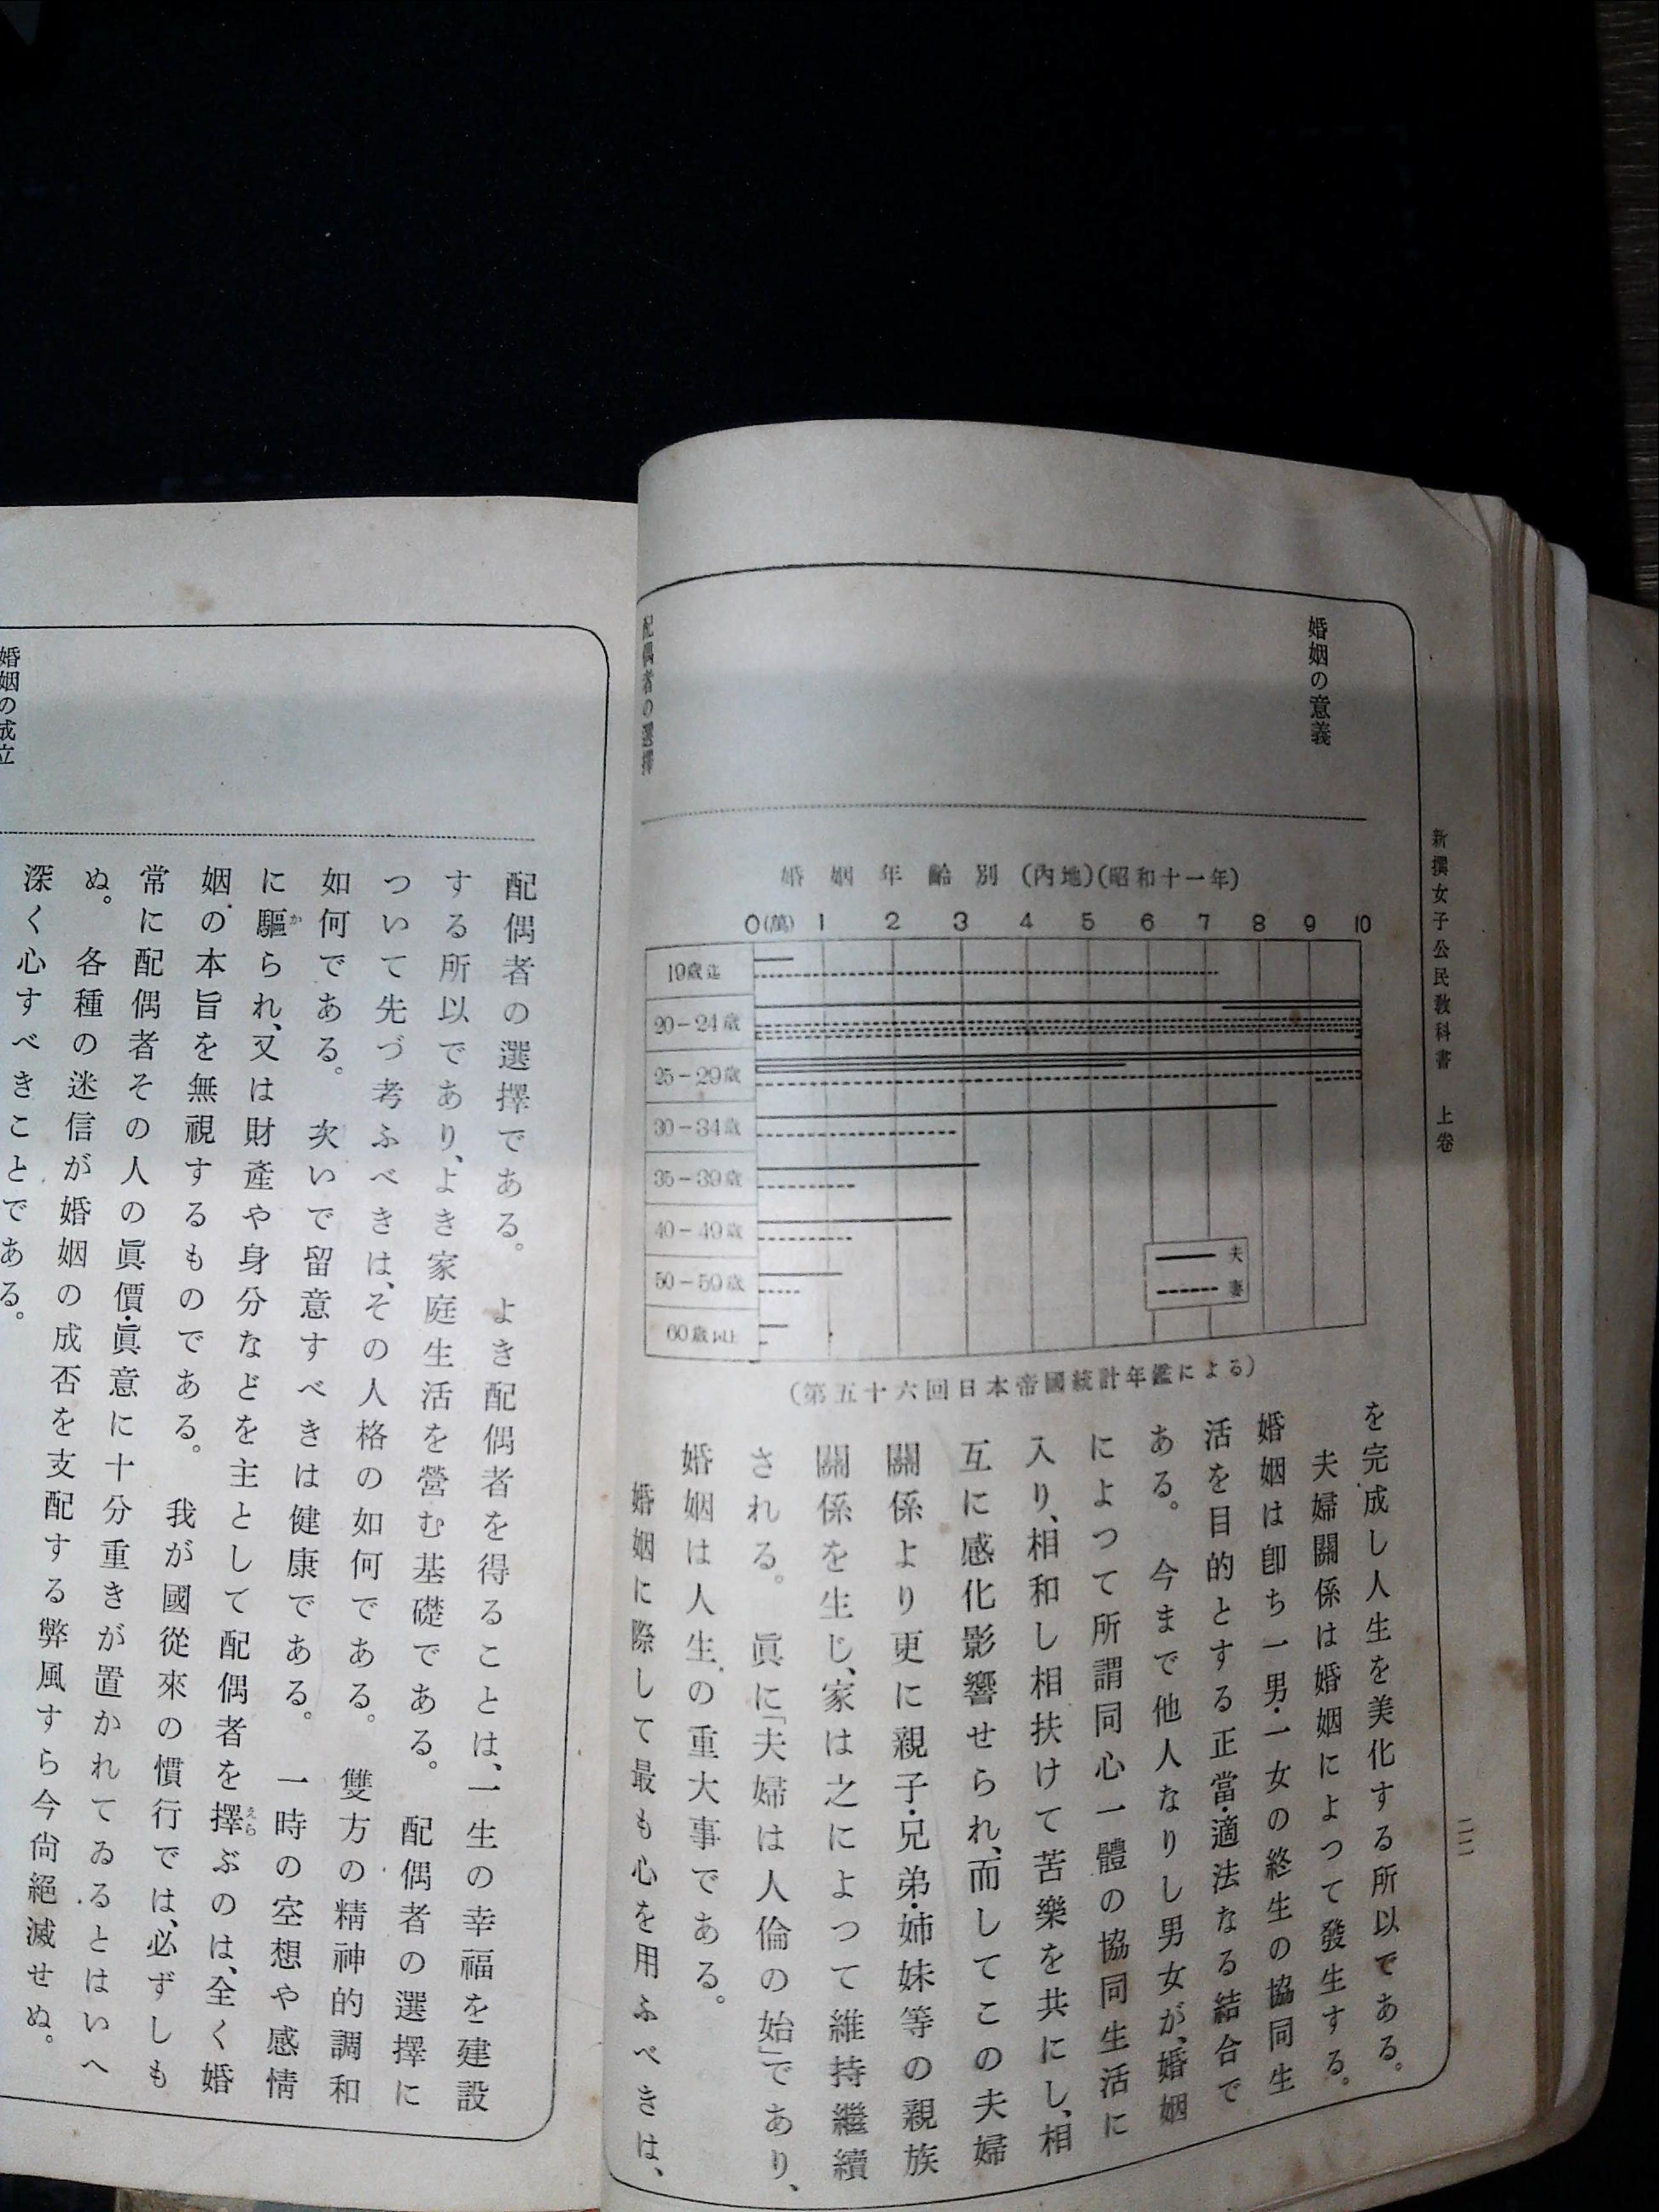 新撰女子公民敎科書　上卷
二二
婚姻の意義
配偶者の選擇
婚姻年齡別(內地)(昭和十一年)
0(萬) 1 2 3 4 5 6 7 8 9 10
19歲迄
20－24歲
25－29歲
30－34歲
35－39歲
40－49歲
50－59歲
60歲以上
夫
妻
(第五十六回日本帝國統計年鑑による)
を完成し人生を美化する所以である。
夫婦關係は婚姻によつて發生する。
婚姻は卽ち一男・一女の終生の協同生
活を目的とする正當・適法なる結合で
ある。　今まで他人なりし男女が、婚姻
によつて所謂同心一體の協同生活に
入り、相和し相扶けて苦樂を共にし、相
互に感化影響せられ、而してこの夫婦
關係より更に親子・兄弟・姉妹等の親族
關係を生じ、家は之によつて維持繼續
される。　眞に「夫婦は人倫の始」であり、
婚姻は人生の重大事である。
婚姻に際して最も心を用ふべきは、
婚姻の成立
配偶者の選擇である。　よき配偶者を得ることは、一生の幸福を建設
する所以であり、よき家庭生活を營む基礎である。　配偶者の選擇に
ついて先づ考ふべきは、その人格の如何である。　雙方の精神的調和
如何である。　次いで留意すべきは健康である。　一時の空想や感情
に驅られ、又は財產や身分などを主として配偶者を擇ぶのは、全く婚
か
えら
姻の本旨を無視するものである。　我が國從來の慣行では、必ずしも
常に配偶者その人の眞價・眞意に十分重きが置かれてゐるとはいへ
ぬ。　各種の迷信が婚姻の成否を支配する弊風すら今尙絕滅せぬ。
深く心すべきことである。